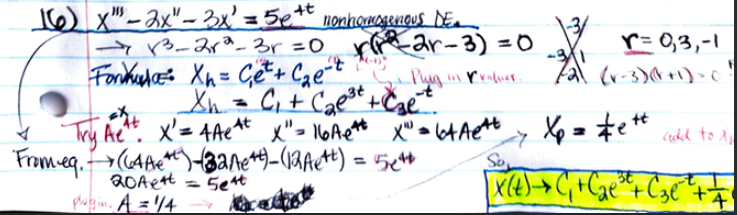 16) x''' - 2x'' - 3x' = 5e^4t nonhomogenous DE.
→ r³ - 2r² - 3r = 0 r(r² - 2r - 3) = 0 r = 0, 3, -1
Formula: Xh = C₁e^t + C₂e^-t Plug in r values. (r-3)(r+1) = 0
-3 3 1 -2
Xh = C₁ + C₂e^3t + C₃e^-t
Try Ae^4t. = x X' = 4Ae^4t X'' = 16Ae^4t X''' = 64Ae^4t → Xp = 1/4 e^4t add to
From eq. → (64Ae^4t) - (32Ae^4t) - (12Ae^4t) = 5e^4t
20Ae^4t = 5e^4t So,
plug in. A = 1/4 → X(t) → C₁ + C₂e^3t + C₃e^-t + 1/4